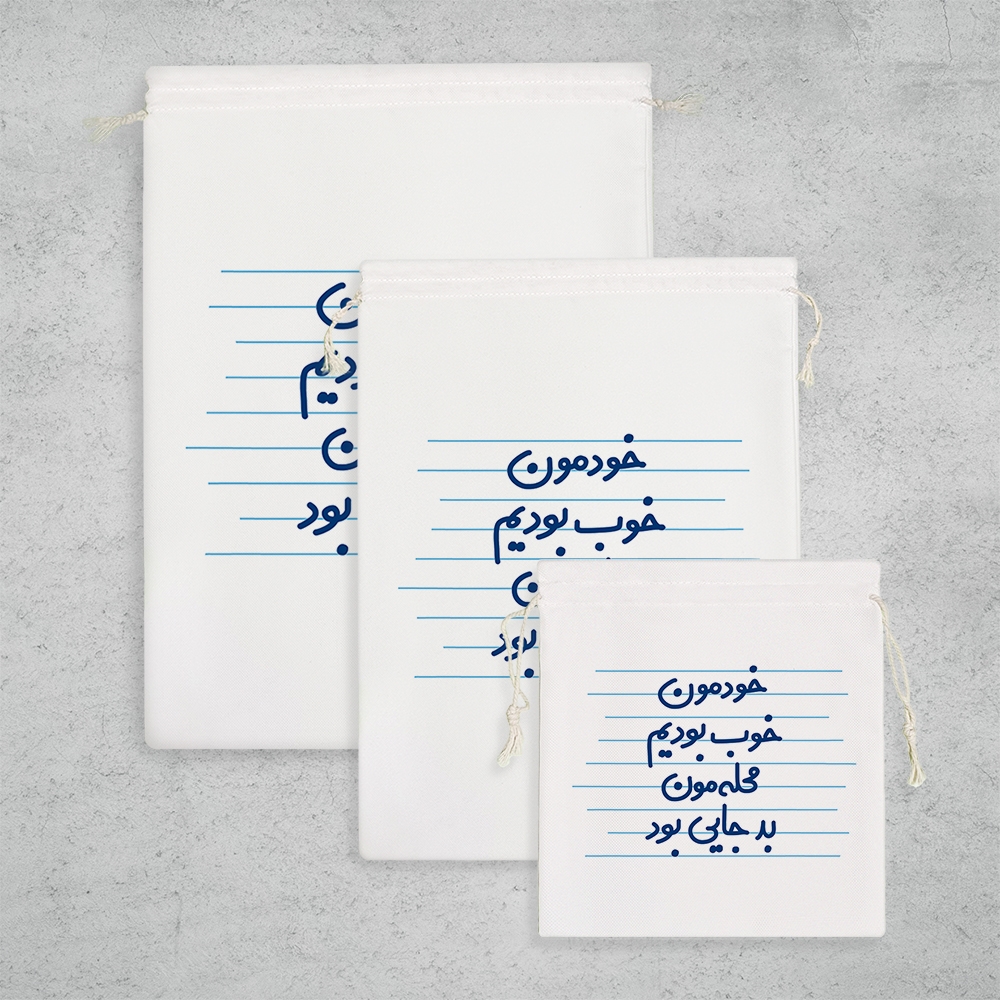 ن
دیم
ن
بود
خودمون
خوب بودیم
ن
بود
خودمون
خوب بودیم
محله‌مون
بد جایی بود